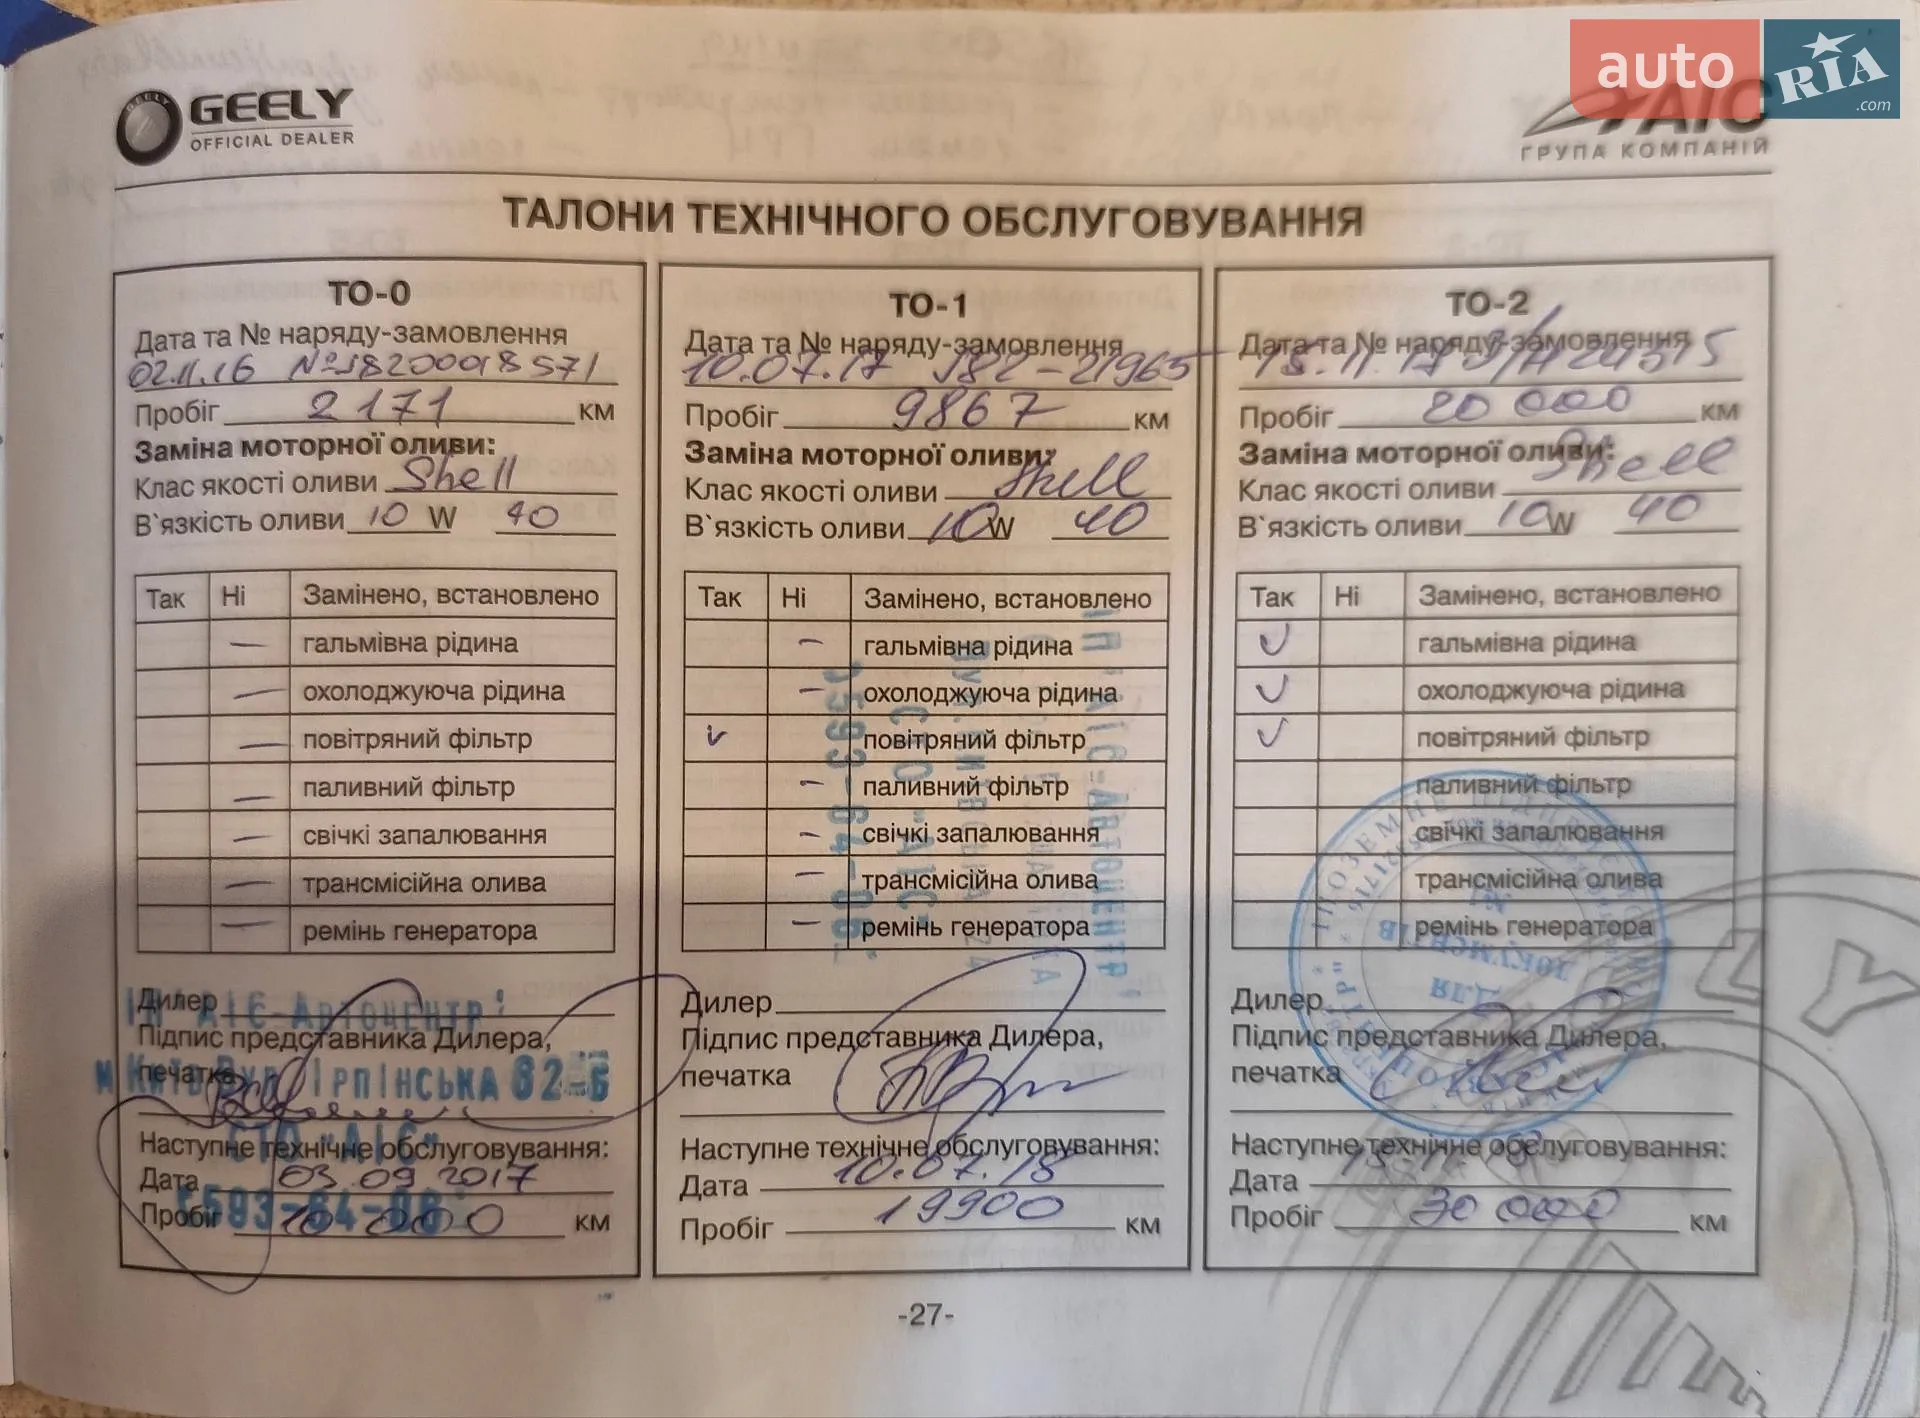 auto RIA .com
GEELY
OFFICIAL DEALER
АІС
ГРУПА КОМПАНІЙ
ТАЛОНИ ТЕХНІЧНОГО ОБСЛУГОВУВАННЯ
ТО-0
Дата та № наряду-замовлення
02.11.16 №J820018571
Пробіг 2171 км
Заміна моторної оливи:
Клас якості оливи Shell
В`язкість оливи 10 W 40
Так Ні Замінено, встановлено
— гальмівна рідина
— охолоджуюча рідина
— повітряний фільтр
— паливний фільтр
— свічкі запалювання
— трансмісійна олива
— ремінь генератора
Дилер
ІП АІС-Автоцентр
Підпис представника Дилера,
печатка
м.Київ Вул Ірпінська 62-Б
Наступне технічне обслуговування:
СТО "АІС"
Дата 03.09.2017
593-64-06
Пробіг 10 000 км
ТО-1
Дата та № наряду-замовлення
10.07.17 J82-21965
Пробіг 9867 км
Заміна моторної оливи:
Клас якості оливи Shell
В`язкість оливи 10W 40
Так Ні Замінено, встановлено
— гальмівна рідина
— охолоджуюча рідина
✓ повітряний фільтр
— паливний фільтр
— свічкі запалювання
— трансмісійна олива
— ремінь генератора
ІП "АІС-Автоцентр"
СТО "АІС"
593-64-06
Дилер
Підпис представника Дилера,
печатка
Наступне технічне обслуговування:
Дата 10.07.18
Пробіг 19900 км
ТО-2
Дата та № наряду-замовлення
15.11.17
Пробіг 20 000 км
Заміна моторної оливи:
Клас якості оливи Shell
В`язкість оливи 10W 40
Так Ні Замінено, встановлено
✓ гальмівна рідина
✓ охолоджуюча рідина
✓ повітряний фільтр
паливний фільтр
свічкі запалювання
трансмісійна олива
ремінь генератора
ДЛЯ
ДОКУМЕНТІВ
Дилер
Підпис представника Дилера,
печатка
Наступне технічне обслуговування:
Дата
Пробіг 30 000 км
-27-